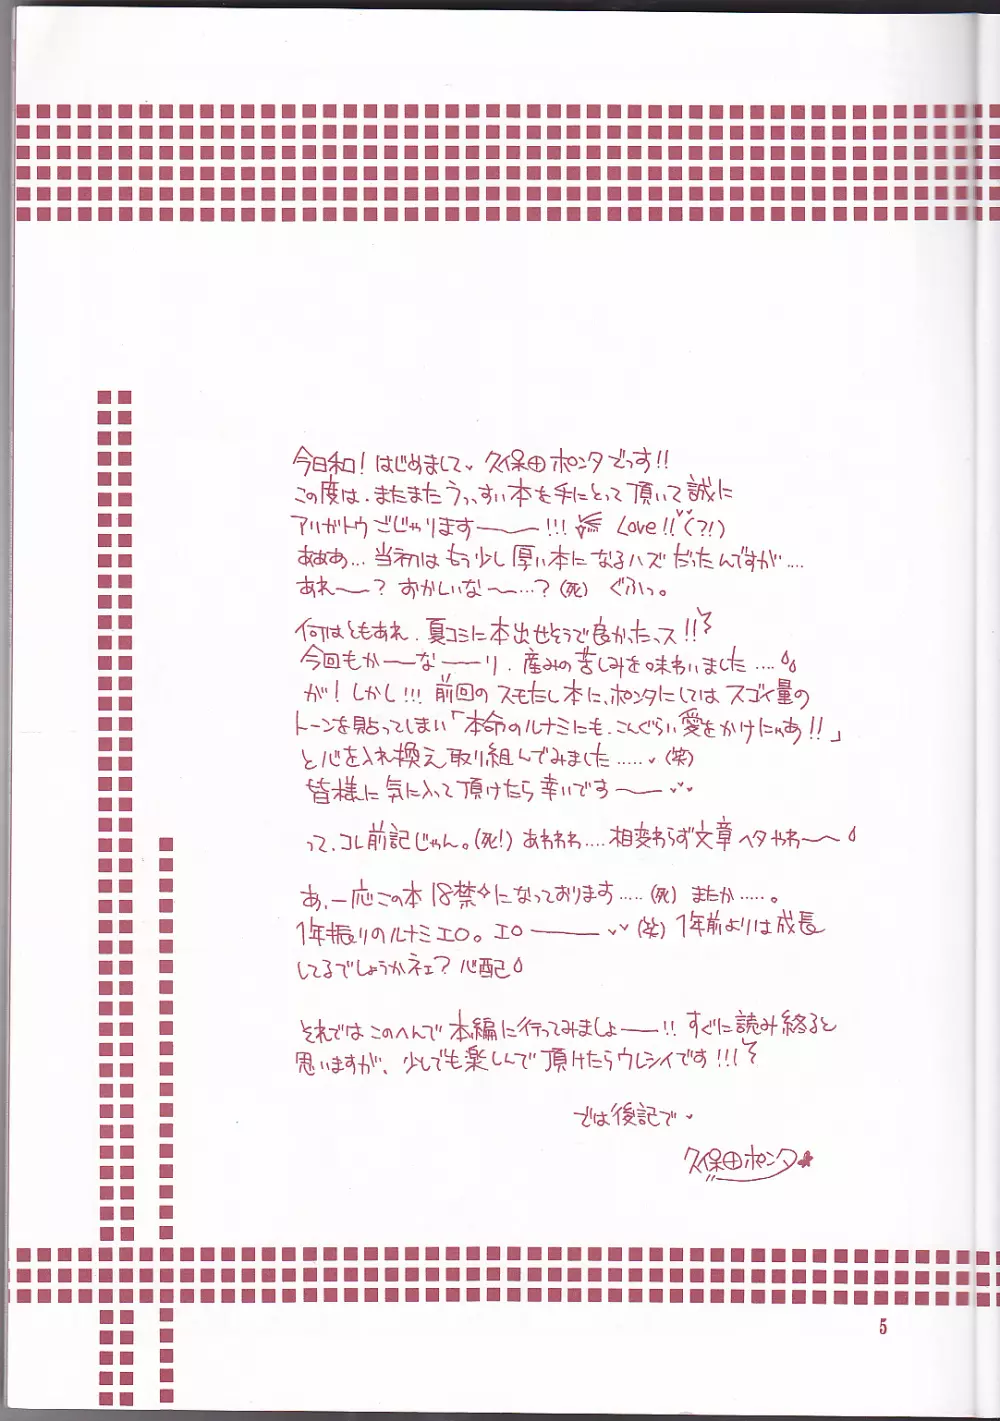 今日和!はじめまして♥久保田ポンタでっす!!
この度は、またまたうっっすい本を手にとって頂いて誠に
アリガトウごじゃりますーー!!! Love!!(?!)
あああ…当初はもう少し厚い本になるハズだったんですが….
あれー?おかしいなー…?(死) ぐふっ。
何はともあれ、夏コミに本出せそうで良かったっス!!
今回もかーなーり、産みの苦しみを味わいました….
が!しかし!!!前回のスモたし本に、ポンタにしてはスゴイ量の
トーンを貼ってしまい「本命のルナミにも、こんぐらい愛をかけにゃあ!!」
と心を入れ換え取り組んでみました…..♥(笑)
皆様に気に入って頂けたら幸いですー♥♥
って、コレ前記じゃん。(死!) あわわわ….相変わらず文章ヘタやわー
あ、一応この本18禁になっております…..(死) またか…..。
1年振りのルナミエロ。エローー♥♥(笑) 1年前よりは成長
してるでしょうかネェ?心配
それではこのへんで本編に行ってみましょー!!すぐに読み終ると
思いますが、少しでも楽しんで頂けたらウレシイです!!!
では後記で♥
久保田ポンタ
5